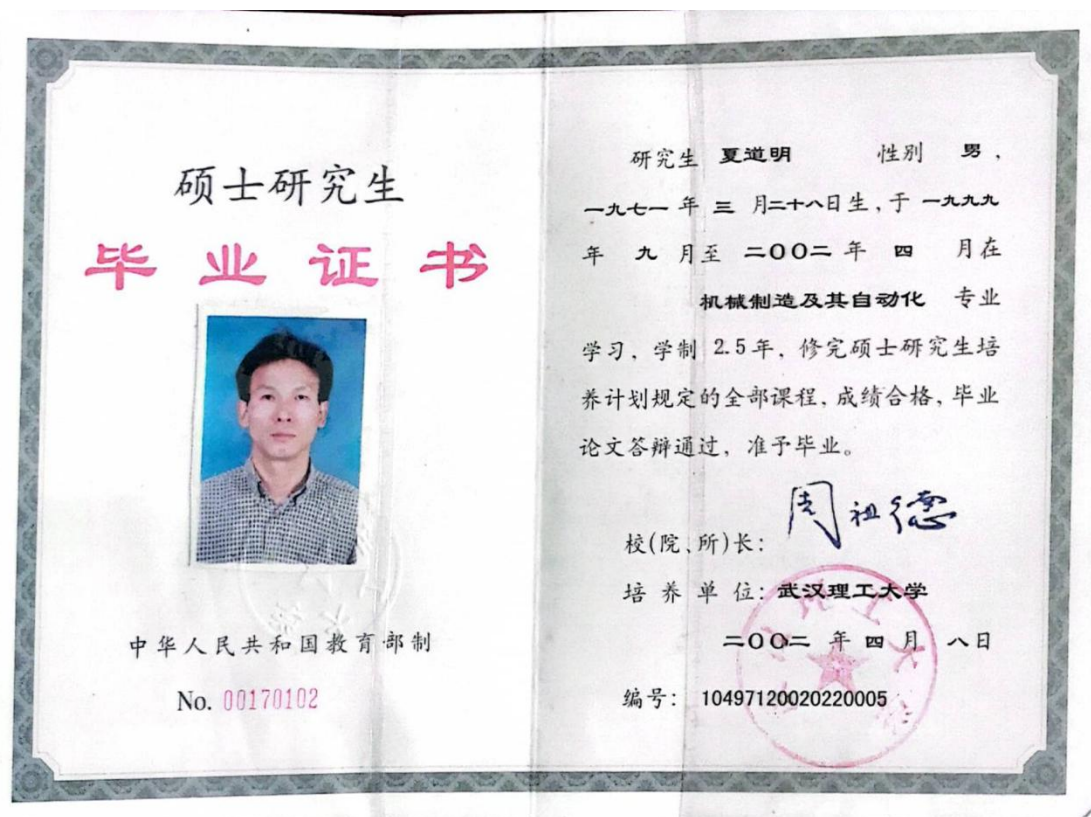 硕士研究生
毕业证书
中华人民共和国教育部制
No. 00170102
研究生 夏道明 性别 男,
一九七一 年 三 月二十八日生,于 一九九九
年 九 月至 二〇〇二 年 四 月在
机械制造及其自动化 专业
学习, 学制 2.5年, 修完硕士研究生培
养计划规定的全部课程, 成绩合格, 毕业
论文答辩通过, 准予毕业。
校(院、所)长: 周祖德
培 养 单 位: 武汉理工大学
二〇〇二 年 四 月 八日
编号: 10497120020220005